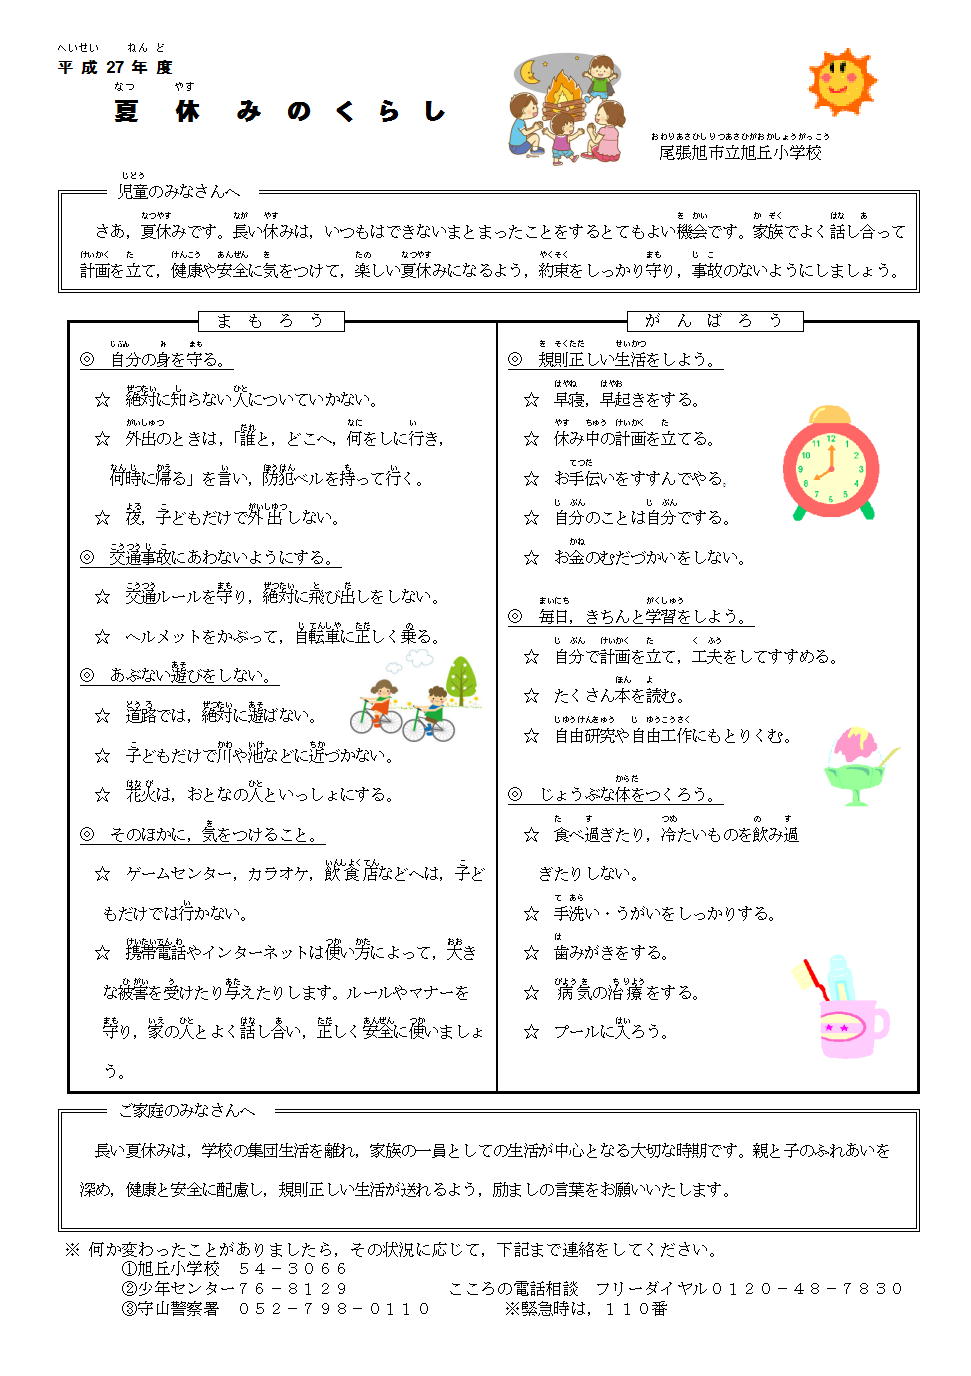 平成27年度
夏休みのくらし
尾張旭市立旭丘小学校
児童のみなさんへ
さあ，夏休みです。長い休みは，いつもはできないまとまったことをするとてもよい機会です。家族でよく話し合って
計画を立て，健康や安全に気をつけて，楽しい夏休みになるよう，約束をしっかり守り，事故のないようにしましょう。
まもろう
◎　自分の身を守る。
☆　絶対に知らない人についていかない。
☆　外出のときは，「誰と，どこへ，何をしに行き，
何時に帰る」を言い，防犯ベルを持って行く。
☆　夜，子どもだけで外出しない。
◎　交通事故にあわないようにする。
☆　交通ルールを守り，絶対に飛び出しをしない。
☆　ヘルメットをかぶって，自転車に正しく乗る。
◎　あぶない遊びをしない。
☆　道路では，絶対に遊ばない。
☆　子どもだけで川や池などに近づかない。
☆　花火は，おとなの人といっしょにする。
◎　そのほかに，気をつけること。
☆　ゲームセンター，カラオケ，飲食店などへは，子ど
もだけでは行かない。
☆　携帯電話やインターネットは使い方によって，大き
な被害を受けたり与えたりします。ルールやマナーを
守り，家の人とよく話し合い，正しく安全に使いましょ
う。
がんばろう
◎　規則正しい生活をしよう。
☆　早寝，早起きをする。
☆　休み中の計画を立てる。
☆　お手伝いをすすんでやる。
☆　自分のことは自分でする。
☆　お金のむだづかいをしない。
◎　毎日，きちんと学習をしよう。
☆　自分で計画を立て，工夫をしてすすめる。
☆　たくさん本を読む。
☆　自由研究や自由工作にもとりくむ。
◎　じょうぶな体をつくろう。
☆　食べ過ぎたり，冷たいものを飲み過
ぎたりしない。
☆　手洗い・うがいをしっかりする。
☆　歯みがきをする。
☆　病気の治療をする。
☆　プールに入ろう。
ご家庭のみなさんへ
長い夏休みは，学校の集団生活を離れ，家族の一員としての生活が中心となる大切な時期です。親と子のふれあいを
深め，健康と安全に配慮し，規則正しい生活が送れるよう，励ましの言葉をお願いいたします。
※ 何か変わったことがありましたら，その状況に応じて，下記まで連絡をしてください。
①旭丘小学校　５４－３０６６
②少年センター７６－８１２９　　　こころの電話相談　フリーダイヤル０１２０－４８－７８３０
③守山警察署　０５２－７９８－０１１０　　　※緊急時は，１１０番